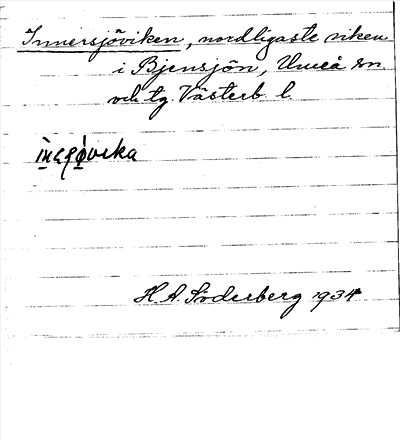 Innersjöviken, nordligaste viken
i Bjensjön, Umeå sn
och tg. Västerb. l.
H. A. Söderberg 1934